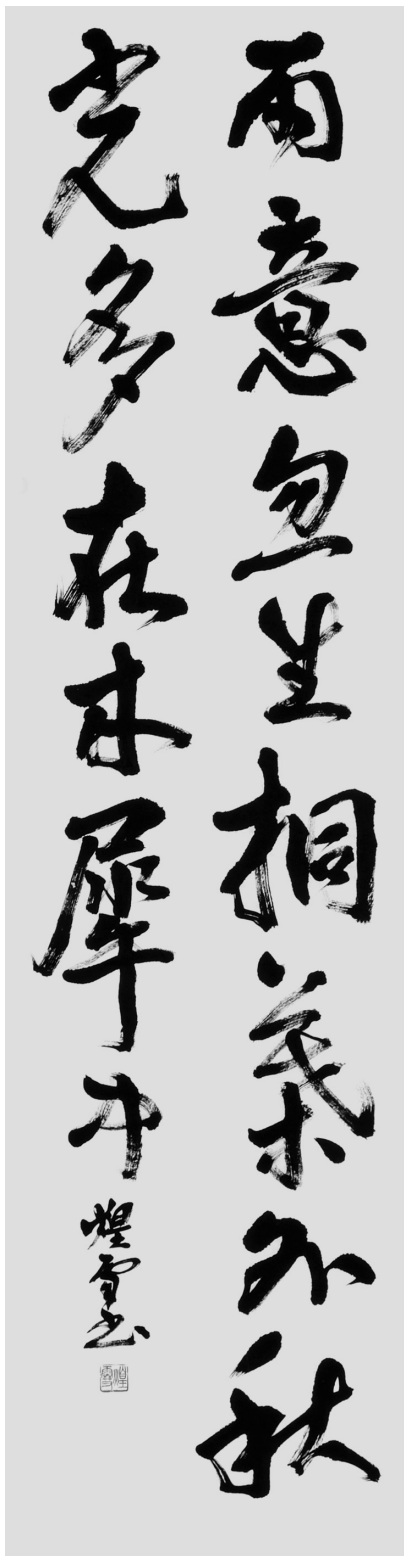 雨意忽生桐葉外秋
光多在木犀中
煌雪書